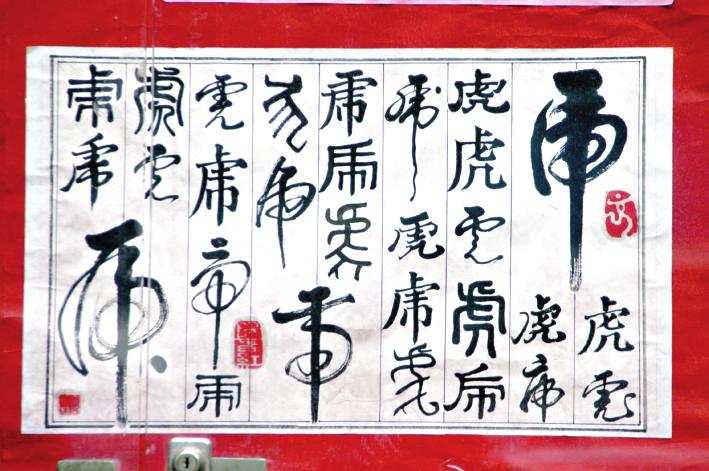 虎
虎虎
虎虎
虎虎虎虎虎
虎虎虎虎
虎虎虎
虎虎
虎
虎虎虎虎
虎虎
虎虎
虎